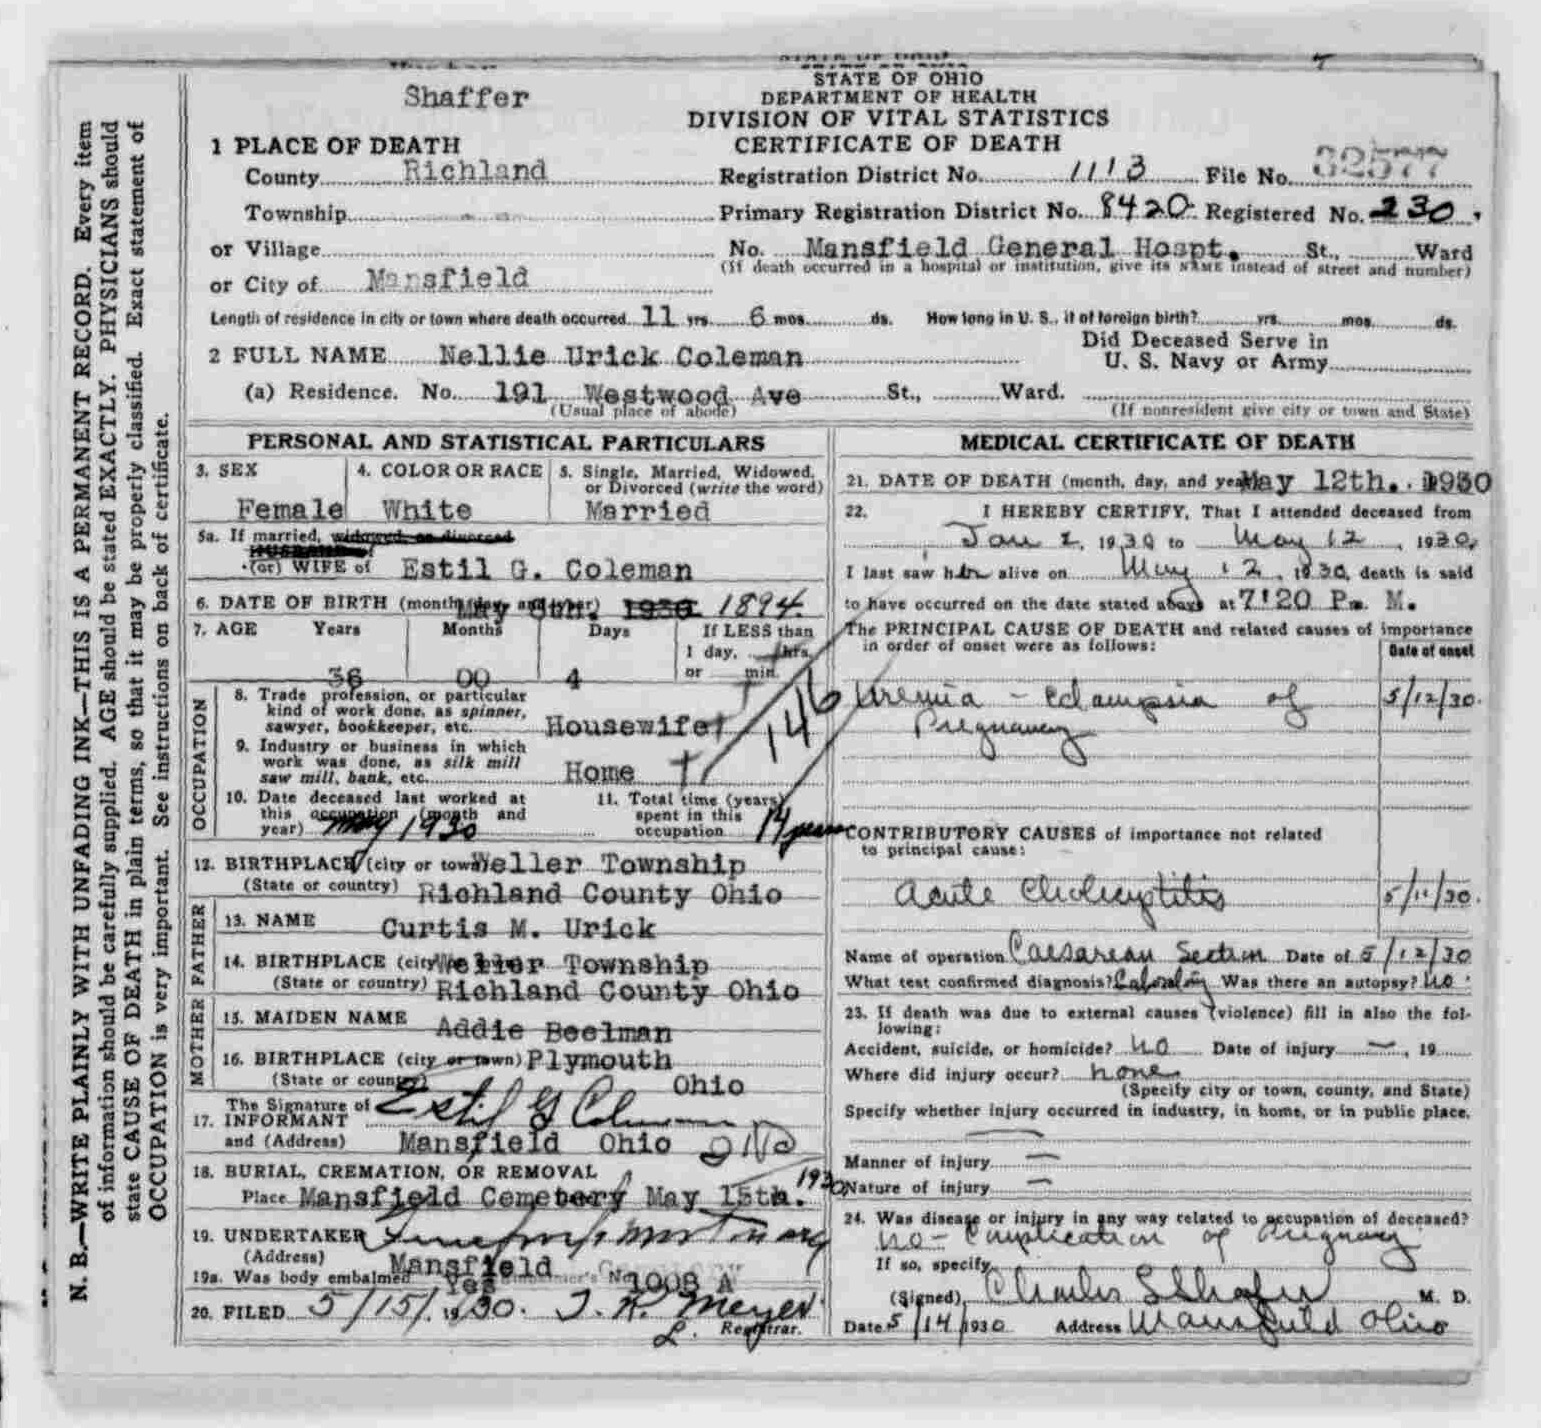 STATE OF OHIO
Shaffer
DEPARTMENT OF HEALTH
DIVISION OF VITAL STATISTICS
CERTIFICATE OF DEATH
1 PLACE OF DEATH
County Richland
Registration District No. 1113 File No. 32577
Township
Primary Registration District No. 8420 Registered No. 230
or Village
No. Mansfield General Hospt. St., Ward
(If death occurred in a hospital or institution, give its NAME instead of street and number)
or City of Mansfield
Length of residence in city or town where death occurred 11 yrs. 6 mos. ds. How long in U. S., if of foreign birth? yrs. mos. ds.
2 FULL NAME Nellie Urick Coleman
Did Deceased Serve in
U. S. Navy or Army
(a) Residence. No. 191 Westwood Ave St., Ward.
(Usual place of abode)
(If nonresident give city or town and State)
PERSONAL AND STATISTICAL PARTICULARS
3. SEX
Female
4. COLOR OR RACE
White
5. Single, Married, Widowed,
or Divorced (write the word)
Married
5a. If married, widowed, or divorced
HUSBAND of
(or) WIFE of Estil G. Coleman
6. DATE OF BIRTH (month, day, and year) May 8th. 1930 1894
7. AGE Years Months Days
If LESS than
1 day, hrs.
or min.
36 00 4
OCCUPATION
8. Trade profession, or particular
kind of work done, as spinner,
sawyer, bookkeeper, etc. Housewife
9. Industry or business in which
work was done, as silk mill
saw mill, bank, etc. Home
146
10. Date deceased last worked at
this occupation (month and
year) May 1930
11. Total time (years)
spent in this
occupation 14 years
12. BIRTHPLACE (city or town) Weller Township
(State or country) Richland County Ohio
FATHER
13. NAME Curtis M. Urick
14. BIRTHPLACE (city or town) Weller Township
(State or country) Richland County Ohio
MOTHER
15. MAIDEN NAME Addie Beelman
16. BIRTHPLACE (city or town) Plymouth
(State or country) Ohio
17. The Signature of
INFORMANT Estil G Coleman
and (Address) Mansfield Ohio
18. BURIAL, CREMATION, OR REMOVAL
Place Mansfield Cemetery May 15th. 1930
19. UNDERTAKER
(Address) Mansfield
19a. Was body embalmed Yes Embalmer's No. 1008 A
20. FILED 5/15/ 1930. Meyer
Registrar.
MEDICAL CERTIFICATE OF DEATH
21. DATE OF DEATH (month, day, and year) May 12th. 1930
22. I HEREBY CERTIFY, That I attended deceased from
Jan 2, 1930 to May 12, 1930,
I last saw her alive on May 12, 1930, death is said
to have occurred on the date stated above at 7:20 P. M.
The PRINCIPAL CAUSE OF DEATH and related causes of importance
in order of onset were as follows:
Date of onset
Uremia - Eclampsia of 5/12/30.
Pregnancy
CONTRIBUTORY CAUSES of importance not related
to principal cause:
Acute Cholecystitis 5/11/30.
Name of operation Caesarean Section Date of 5/12/30
What test confirmed diagnosis? Was there an autopsy? no
23. If death was due to external causes (violence) fill in also the fol-
lowing:
Accident, suicide, or homicide? no Date of injury —, 19
Where did injury occur? none
(Specify city or town, county, and State)
Specify whether injury occurred in industry, in home, or in public place.
Manner of injury —
Nature of injury —
24. Was disease or injury in any way related to occupation of deceased?
no - Complication of Pregnancy
If so, specify
(Signed) Charles S Shafer M. D.
Date 5/14/1930 Address Mansfield Ohio
N. B.—WRITE PLAINLY WITH UNFADING INK—THIS IS A PERMANENT RECORD. Every item
of information should be carefully supplied. AGE should be stated EXACTLY. PHYSICIANS should
state CAUSE OF DEATH in plain terms, so that it may be properly classified. Exact statement of
OCCUPATION is very important. See instructions on back of certificate.